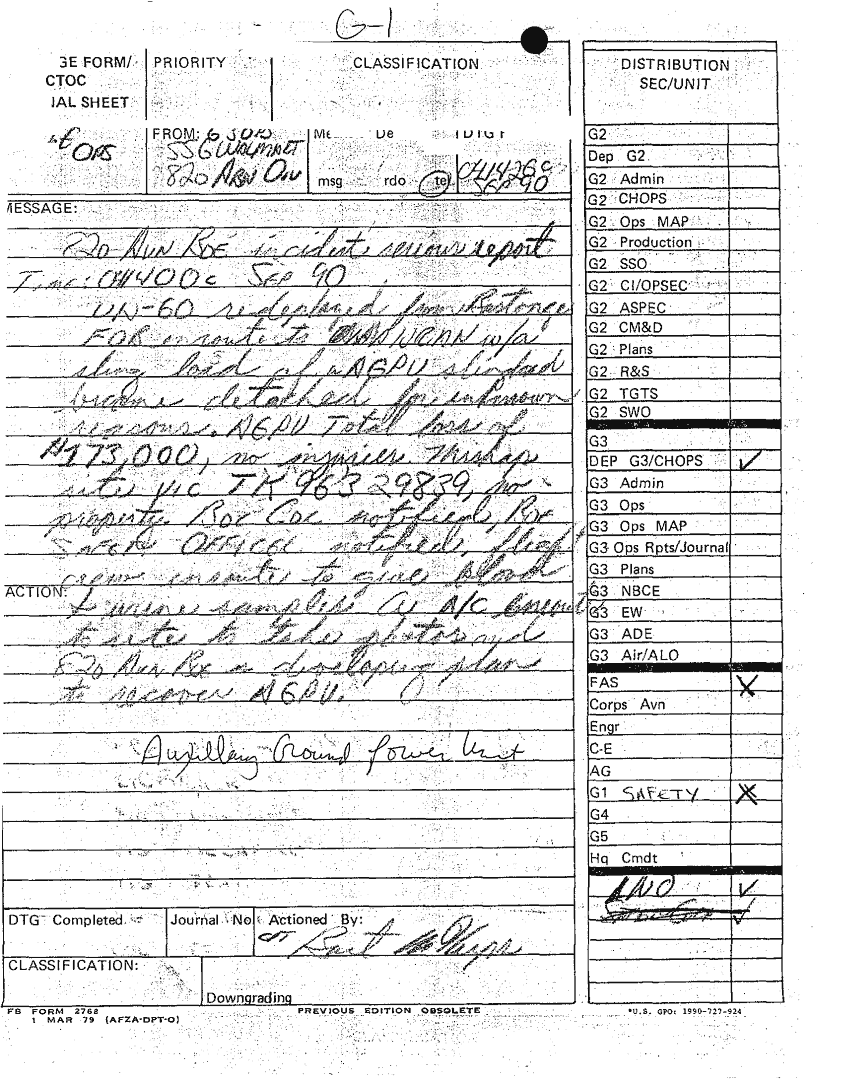 G-1
GE FORM/
CTOC
IAL SHEET
PRIORITY
CLASSIFICATION
OPS
FROM: G3 OPS
SSG
820 AVN DIV
msg rdo te
DTG
041426c
SEP 90
MESSAGE:
incident serious report
Time: 041400c SEP 90
UH-60 redeployed from Bastonge
FOB enroute to w/a
sling load of a AGPU slingload
became detached for unknown
reasons. AGPU Total loss of
$173,000, no injuries
site vic TK 963 29839, no
property notified,
SAFETY OFFICER notified, flight
crew enroute to give blood
ACTION:
& urine samples A/C enroute
to site to take photos and
820 AVN developing plan
to recover AGPU.
Auxillary Ground Power Unit
DTG Completed
Journal No
Actioned By:
CLASSIFICATION:
Downgrading
FB FORM 2768
1 MAR 79 (AFZA-DPT-O)
PREVIOUS EDITION OBSOLETE
DISTRIBUTION
SEC/UNIT
G2
Dep G2
G2 Admin
G2 CHOPS
G2 Ops MAP
G2 Production
G2 SSO
G2 CI/OPSEC
G2 ASPEC
G2 CM&D
G2 Plans
G2 R&S
G2 TGTS
G2 SWO
G3
DEP G3/CHOPS ✓
G3 Admin
G3 Ops
G3 Ops MAP
G3 Ops Rpts/Journal
G3 Plans
G3 NBCE
G3 EW
G3 ADE
G3 Air/ALO
FAS X
Corps Avn
Engr
C-E
AG
G1 SAFETY X
G4
G5
Hq Cmdt
LNO ✓
*U.S. GPO: 1990-727-924